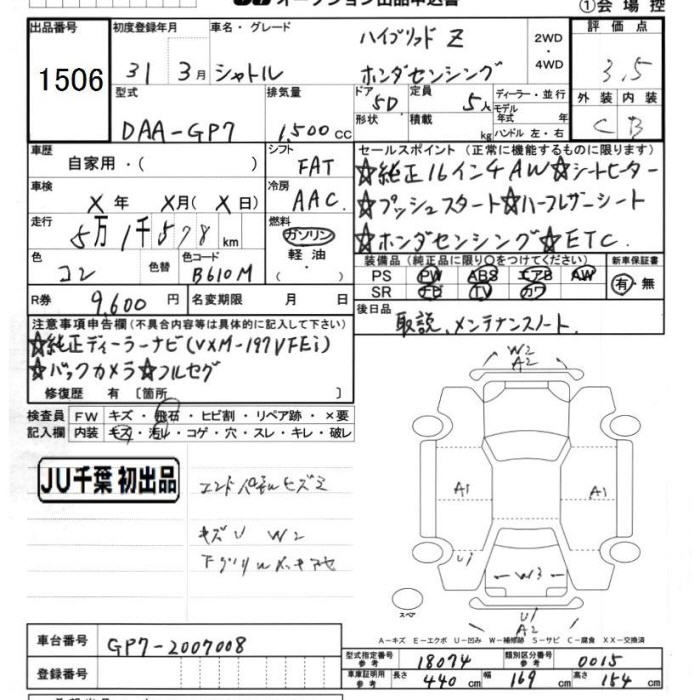 オークション出品申込書
①会場控
出品番号 初度登録年月 車名・グレード ハイブリッド Z 2WD・4WD 評価点
1506 31 3月 シャトル ホンダセンシング 3.5
型式 排気量 ドア 5D 定員 5人 ディーラー・並行 外装 内装
DAA-GP7 1,500cc 形状 積載 kg モデル年式 年式 ハンドル 左・右 C B
車歴 シフト セールスポイント (正常に機能するものに限ります)
自家用・( ) FAT ☆純正16インチAW☆シートヒーター
車検 冷房 ☆プッシュスタート☆ハーフレザーシート
X年 X月(X日) AAC ☆ホンダセンシング☆ETC.
走行 燃料
5万1千578km ガソリン 軽油・( )
色 色替 色コード 装備品 (純正品に限り○をつけてください) 新車保証書
コン B610M PS PW ABS エアB AW 有・無
SR ナビ TV カワ
R券 9,600円 名変期限 月 日 後日品 取説、メンテナンスノート.
注意事項申告欄 (不具合内容等は具体的に記入して下さい)
☆純正ディーラーナビ(VXM-197VFEi)
☆バックカメラ☆フルセグ
修復歴 有 〔箇所 〕
検査員 FW キズ・飛石・ヒビ割・リペア跡・×要
記入欄 内装 キズ・汚れ・コゲ・穴・スレ・キレ・破レ
JU千葉 初出品
エンドパネルヒズミ
キズU W2
W2
A2
A1 A1
Ui
W3
U1
A2
スペア
A-キズ E-エクボ U-凹み W-補修跡 S-サビ C-腐食 XX-交換済
車台番号 GP7-2007008
登録番号
型式指定番号 参考 18074 類別区分番号 参考 0015
車庫証明用 参考 長さ 440cm 幅 169cm 高さ 154cm